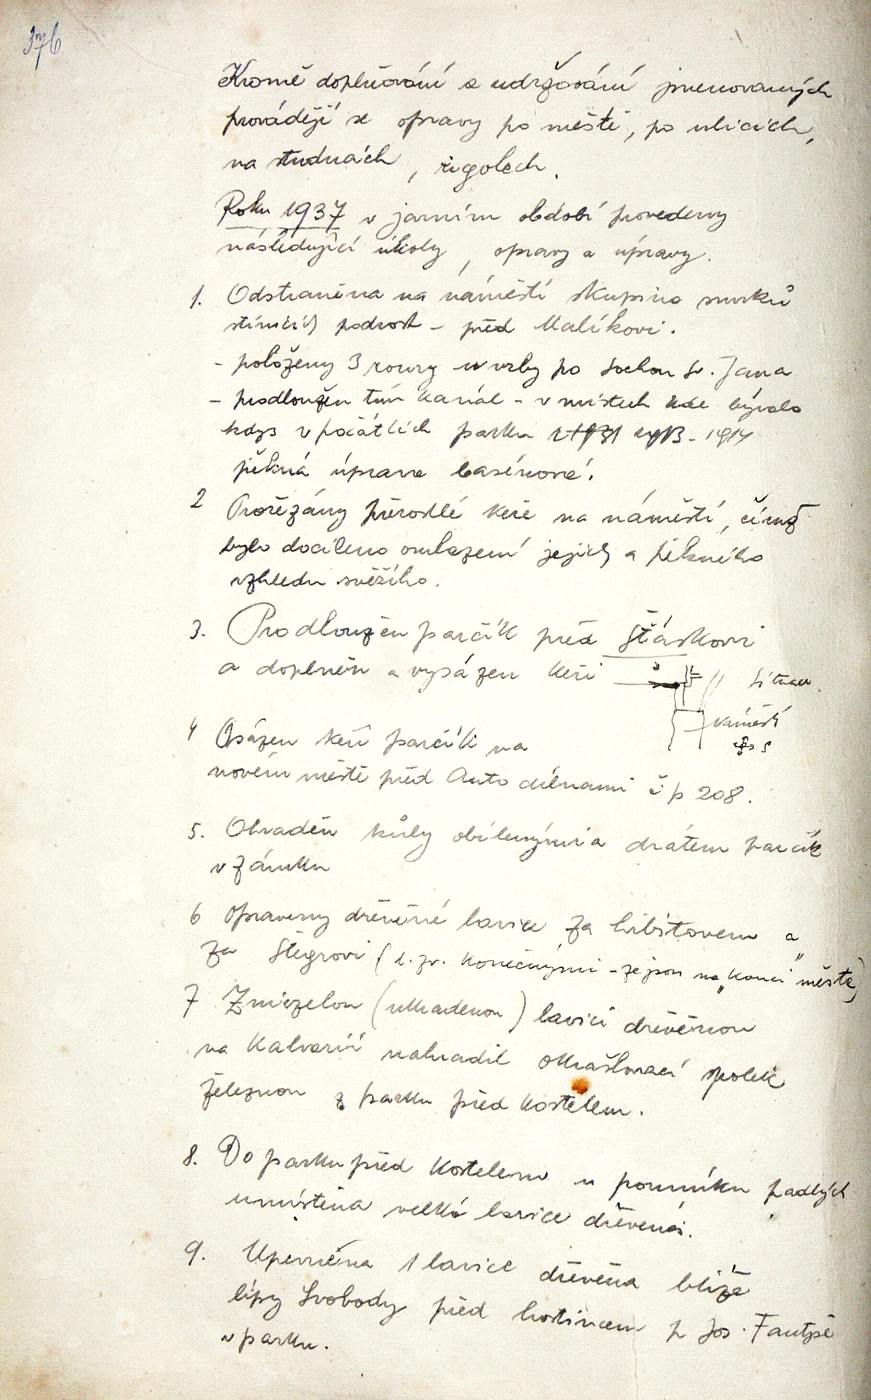 376
Kromě doplňování a udržování jmenovaných
provádějí se opravy po městě, po ulicích,
na studnách, rigolech.
Roku 1937 v jarním období provedeny
následující úkoly, opravy a úpravy.
1. Odstraněna na náměstí skupina smrků
stínící podrost - před Malíkovi.
- položeny 3 roury u vrby po sochou Sv. Jana
- prodloužen tím kanál - v místech kde bývala
kdys v počátcích parku - 1914
pěkná úprava basénová.
2 Prořezány přerostlé keře na náměstí, čímž
bylo docíleno omlazení jejich a pěkného
vzhledu svěžího.
3. Prodloužen parčík před Šťáskovi
a doplněn a vysázen keři
náměstí
4 Osázen keři parčík na
novém městě před Auto dílnami čp 208.
5. Ohraděn kůly obílenými a drátem parčík
v zámku
6 Opraveny dřevěné lavice za hřbitovem a
za Štégrovi (t. zv. Konečnými - že jsou na „Konci" města)
7 Zmizelou (ukradenou) lavici dřevěnou
na Kalvarii nahradil okrašlovací spolek
železnou z parku před kostelem.
8. Do parku před kostelem u pomníku padlých
umístěna velká lavice dřevěná.
9. Upevněna 1 lavice dřevěna blíže
lípy Svobody před hostincem p Jos.
v parku.